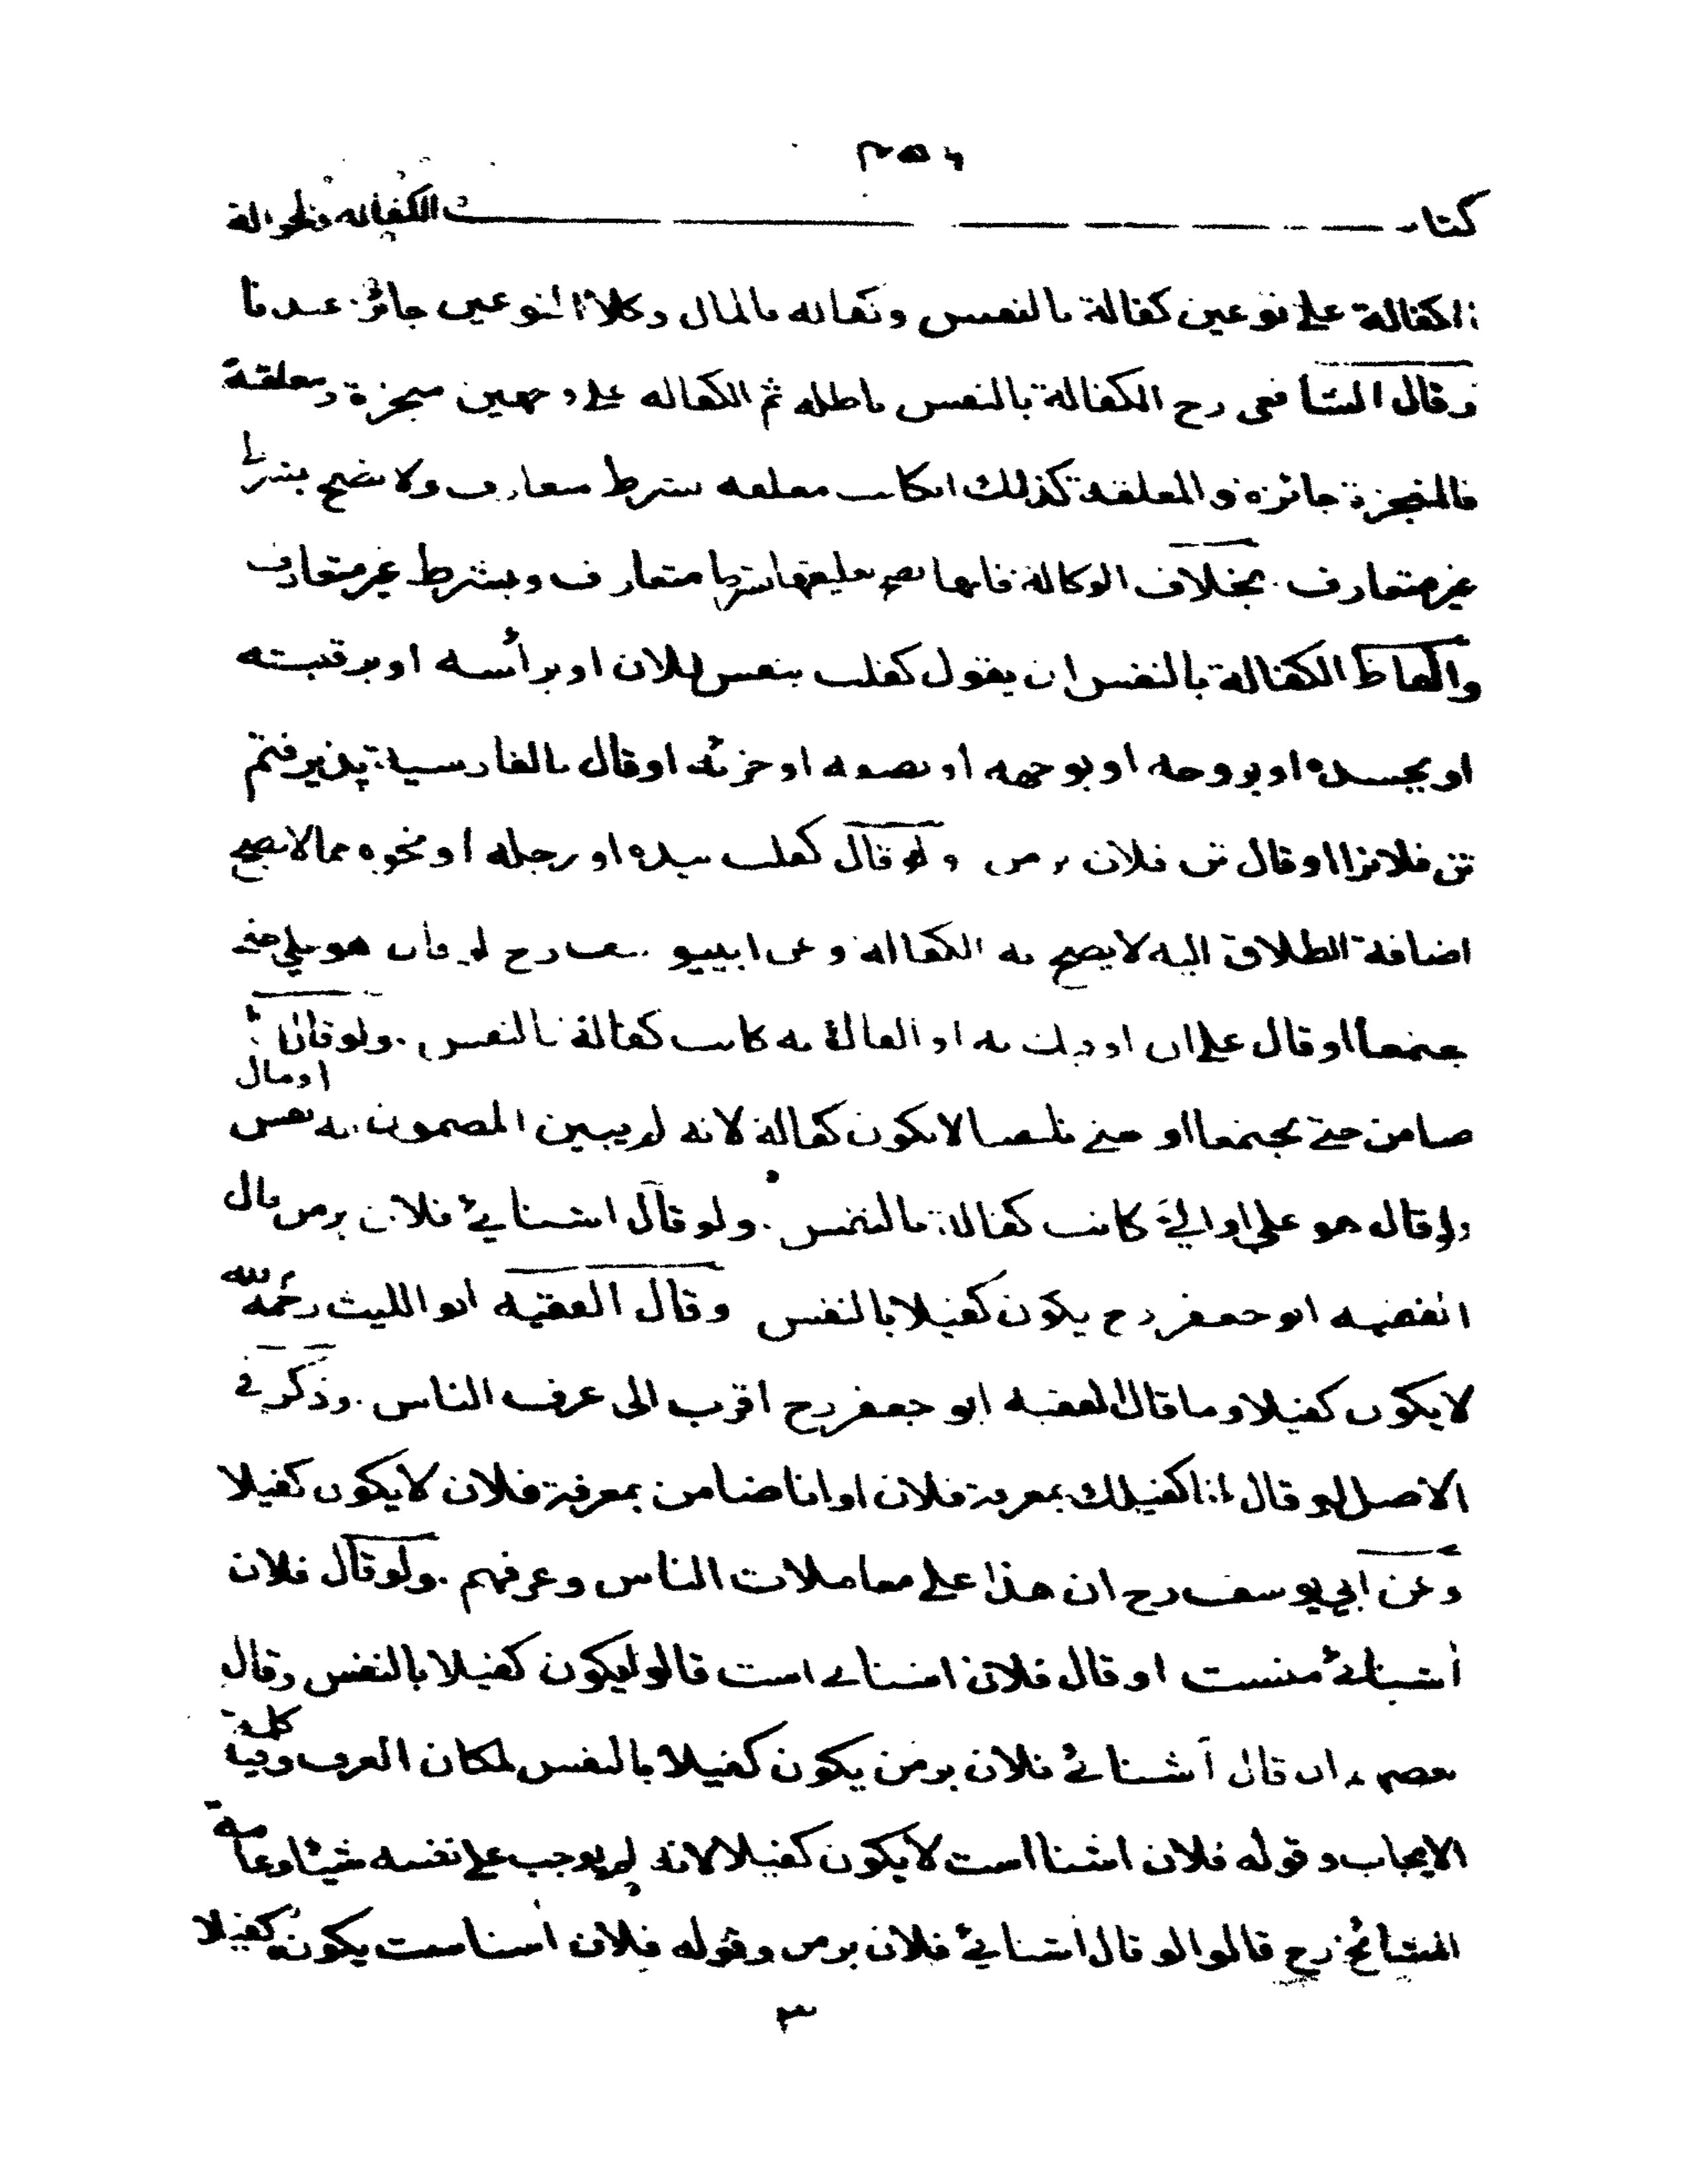 كتاب الكفالة والحوالة
الكفالة على نوعين كفالة بالنفس وكفالة بالمال وكلا النوعين جائز عندنا
وقال الشافعي رح الكفالة بالنفس باطلة ثم الكفالة على وجهين منجزة ومعلقة
فالمنجزة جائزة والمعلقة كذلك ان كانت معلقة بشرط متعارف ولا تصح بشرط
غير متعارف بخلاف الوكالة فانها تصح تعليقها بشرط متعارف وبشرط غير متعارف
والفاظ الكفالة بالنفس ان يقول كفلت بنفس فلان او برأسه او برقبته
او بجسده او بروحه او بوجهه او بنصفه او جزئه او قال بالفارسية پذيرفتم
تن فلانرا او قال تن فلان بر من ولو قال كفلت بيده او رجله او نحوه مما لا يصح
اضافة الطلاق اليه لا يصح به الكفالة وعن ابييو سف رح لو قال هو علي حتى
يجتمعا او قال على ان اوفيك به او القاك به كانت كفالة بالنفس ولو قال انا
ضامن حتى يجتمعا او حتى يلتقيا لا يكون كفالة لانه لم يبين المضمون به نفس او مال
ولو قال هو علي او الي كانت كفالة بالنفس ولو قال اشنائي فلان بر من قال
الفقيه ابو جعفر رح يكون كفيلا بالنفس وقال الفقيه ابو الليث رحمه الله
لا يكون كفيلا وما قال الفقيه ابو جعفر رح اقرب الى عرف الناس وذكر في
الاصل لو قال انا كفيلك بمعرفة فلان او انا ضامن بمعرفة فلان لا يكون كفيلا
وعن ابي يوسف رح ان هذا على معاملات الناس وعرفهم ولو قال فلان
أشنائے منست او قال فلان اشنائے است قالوا يكون كفيلا بالنفس وقال
بعضهم ان قال آشنائے فلان بر من يكون كفيلا بالنفس لمكان العرف وفيه كلمة
الايجاب وقوله فلان اشنا است لا يكون كفيلا لانه لم يوجب على نفسه شيئا وعامة
المشائخ رح قالوا لو قال اشنائي فلان بر من وقوله فلان اشناست يكون كفيلا
٣